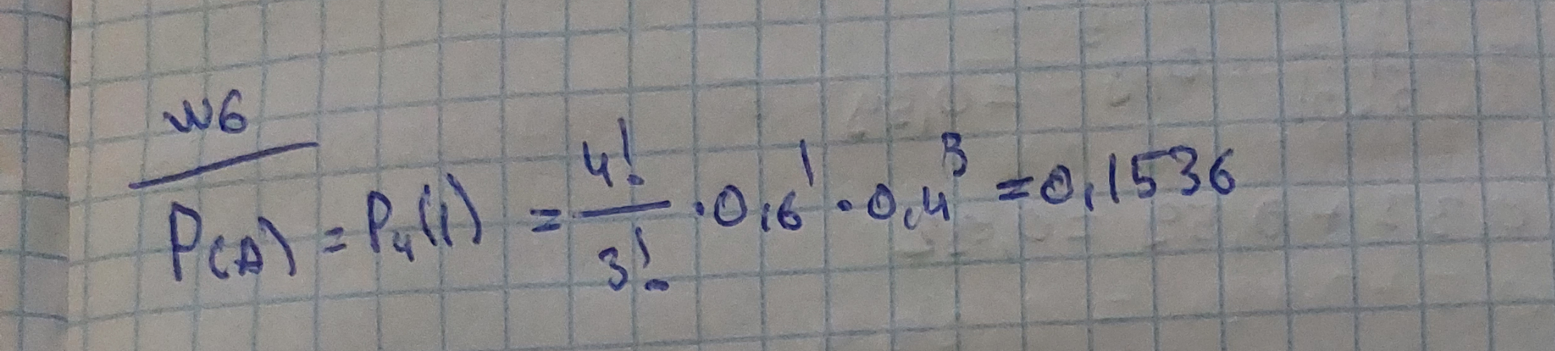 №6
P(A) = P₄(1) = 4!/3! · 0,6¹ · 0,4³ = 0,1536